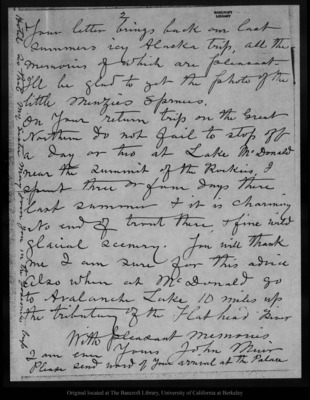 2
BANCROFT
LIBRARY
Your letter brings back our last
summers icy Alaska trip, all the
memories of which are pleasant.
I'll be glad to get the photo of the
little Menzies Spruces.
On your return trip on the Great
Northern do not fail to stop off
a day or two at Lake McDonald
near the summit of the Rockies, I
spent three or four days there
last summer & it is charming
No end of trout there, & fine wild
glacial scenery. You will thank
me I am sure for this advice
Also when at McDonald go
to Avalanche Lake, 10 miles up
the tributary of the Flathead River
With pleasant memories
I am ever Yours John Muir
Please send word of your arrival at the Palace
Hotel so that
Original located at The Bancroft Library, University of California at Berkeley